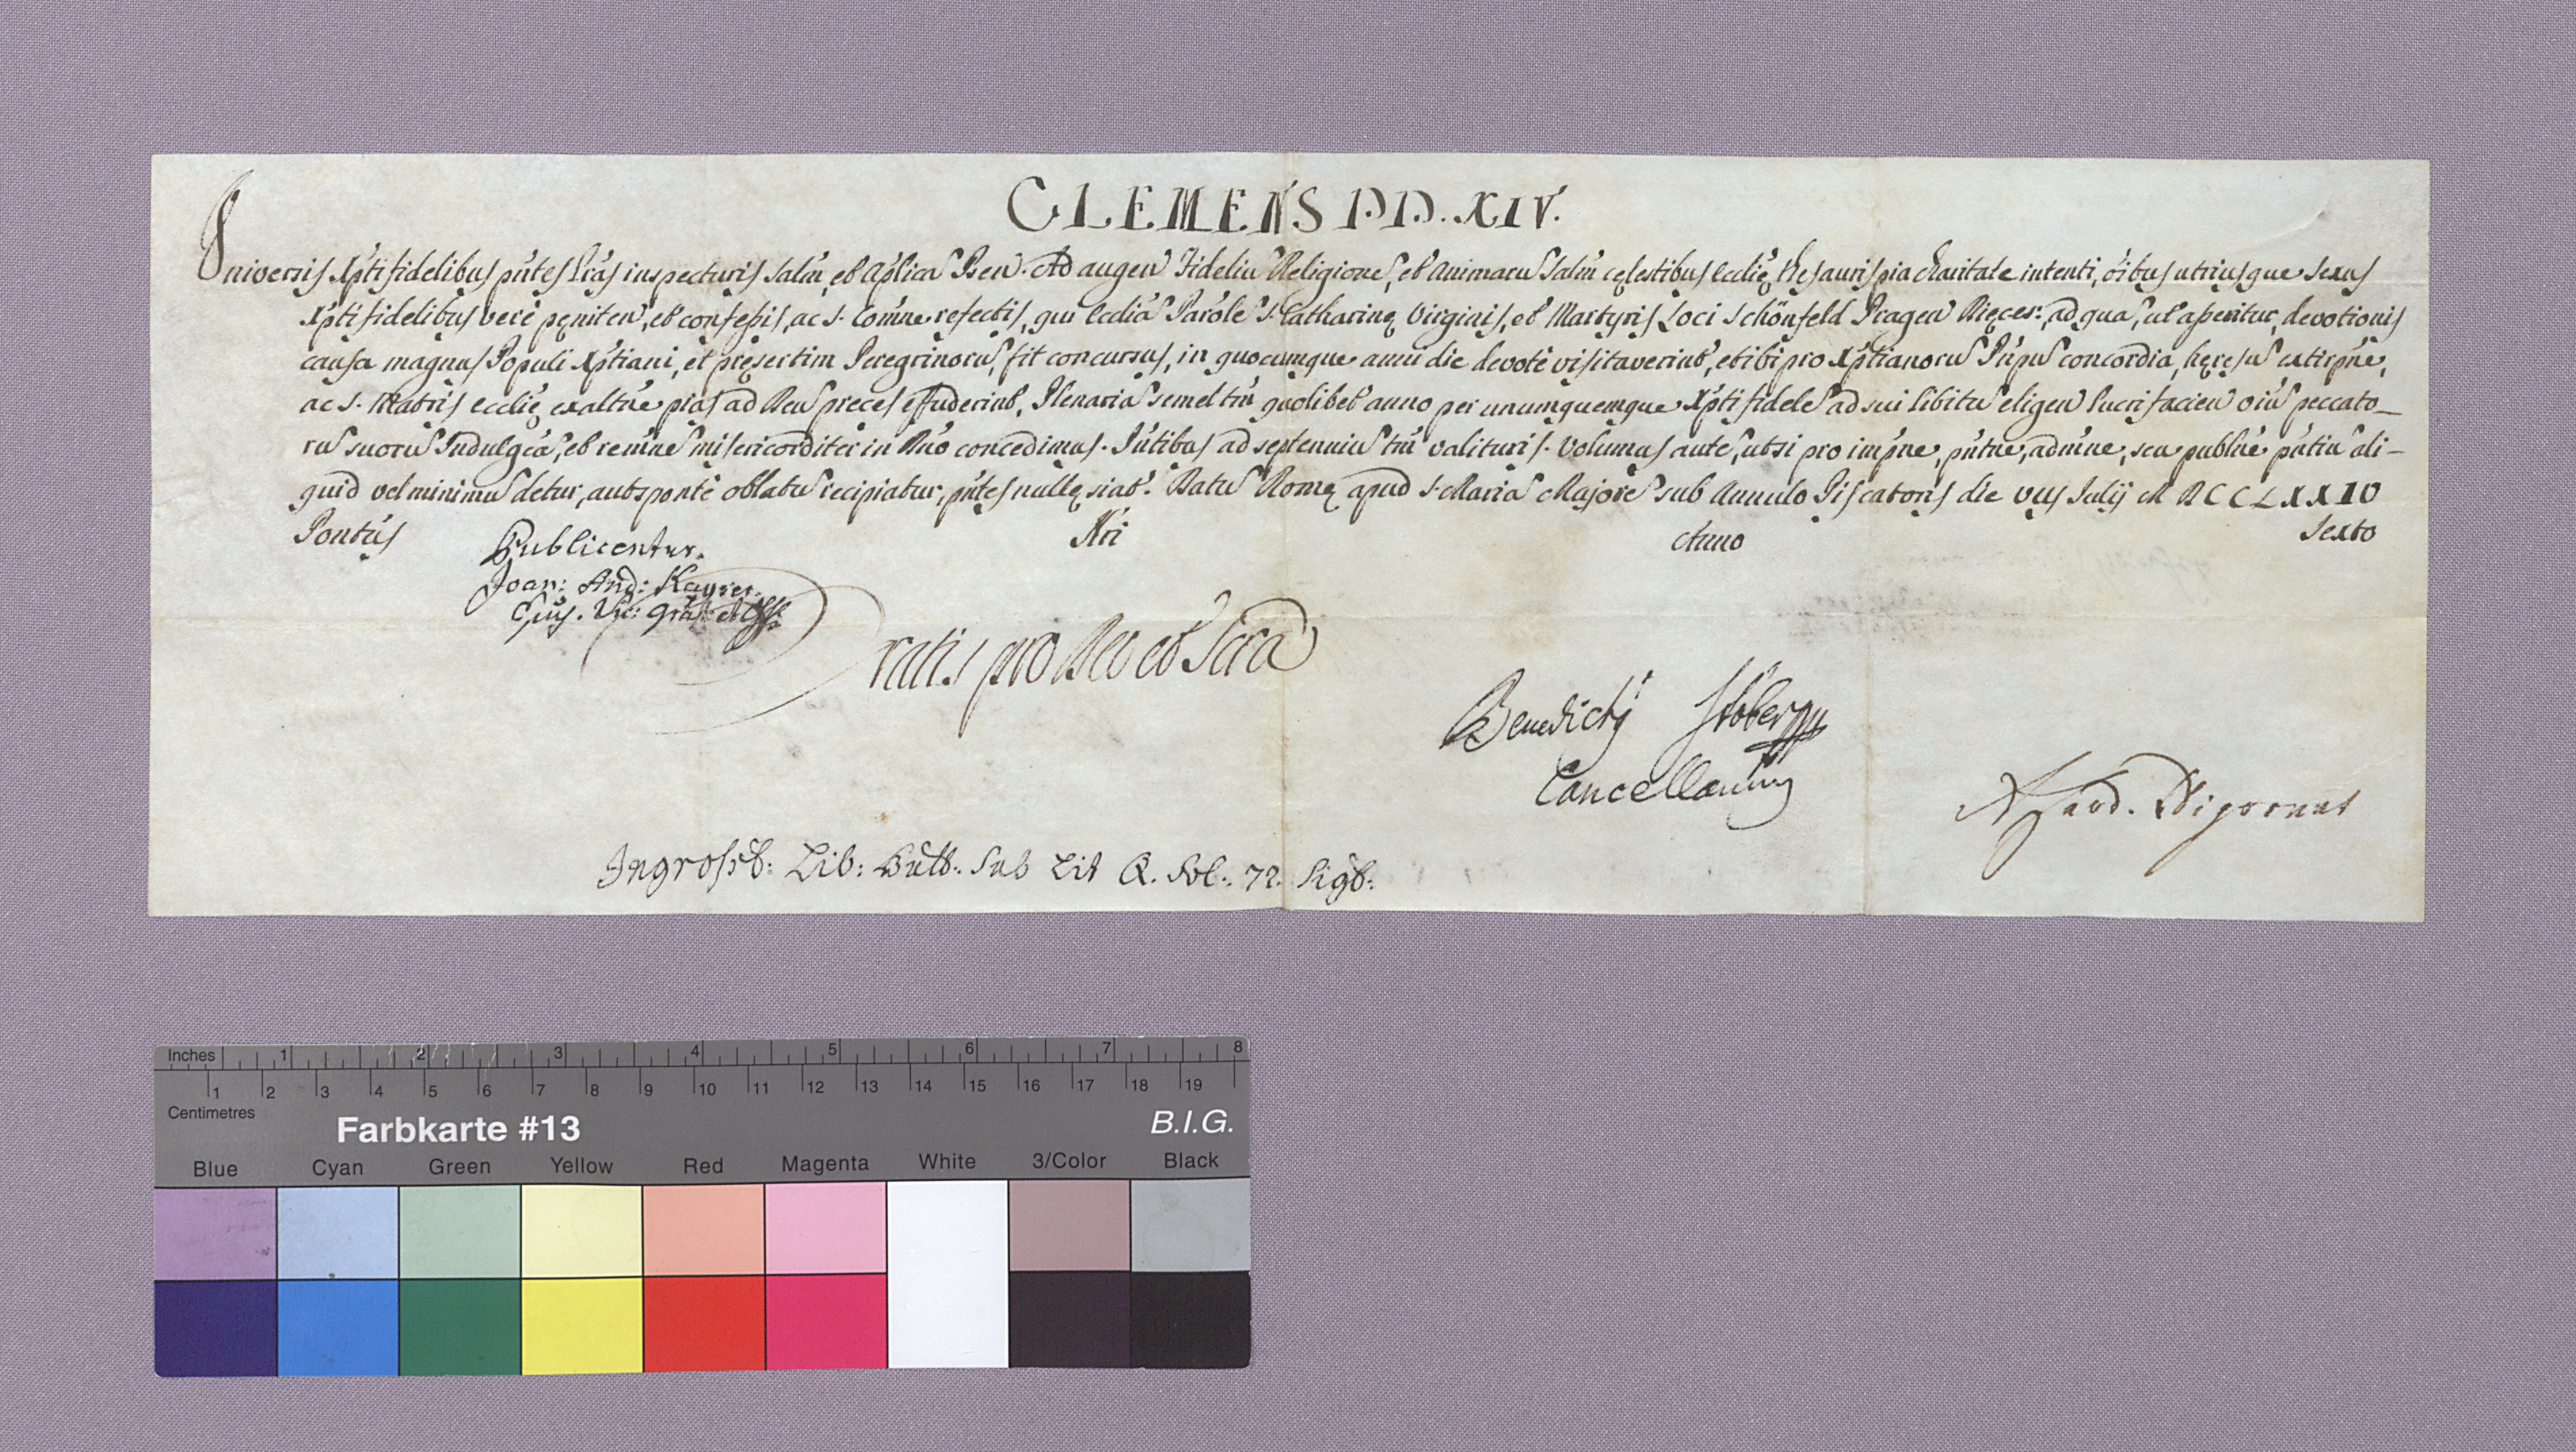 CLEMENS PP. XIV.
Universis Xpti fidelibus pntes Lras inspecturis Salm, et Aplica Ben. Ad augen Fideliu Religione, et Animaru Salm cęlestibus Ecclię thesauris pia charitate intenti, oibus utriusque sexus
Xpti fidelibus verè pęniten, et confessis, ac S. Comne refectis, qui Ecclia Parole S. Catharinę Virginis, et Martyris Loci Schönfeld Pragen Dięces: ad qua, ut asseritur, devotionis
causa magnus Populi Xptiani, et pręsertim Peregrinoru, fit concursus, in quocumque anni die devotè visitaverint, et ibi pro Xptianoru Pnpu concordia, hęresu extirpne,
ac S. Matris Ecclię exaltne pias ad Deu preces effuderint, Plenaria semel tm quolibet anno per unumquemque Xpti fidele ad sui libitu eligen lucrifacien oiu peccato-
ru suoru Indulgea, et remne misericorditer in Dno concedimus. Pntibus ad septenniu tm valituris. Volumus aute, ut si pro impne, pntne, admne, seu publne pntiu ali-
quid vel minimu detur, aut spontè oblatu recipiatur, pntes nullę sint. Datu Romę apud S. Maria Majore sub Annulo Piscatoris die VIIJ Julij MDCCLXXIV
Pontus Nri Anno Sexto
Publicentur.
Joan: And: Kayser
Gratis pro Deo et Scra
Benedictg Stöber
Cancellarius
A Card. Nigronus
Ingrossat: Lib: Bull. Sub Lit Q. Fol: 72. Sigt:
Inches 1 2 3 4 5 6 7 8
1 2 3 4 5 6 7 8 9 10 11 12 13 14 15 16 17 18 19
Centimetres
Farbkarte #13 B.I.G.
Blue Cyan Green Yellow Red Magenta White 3/Color Black